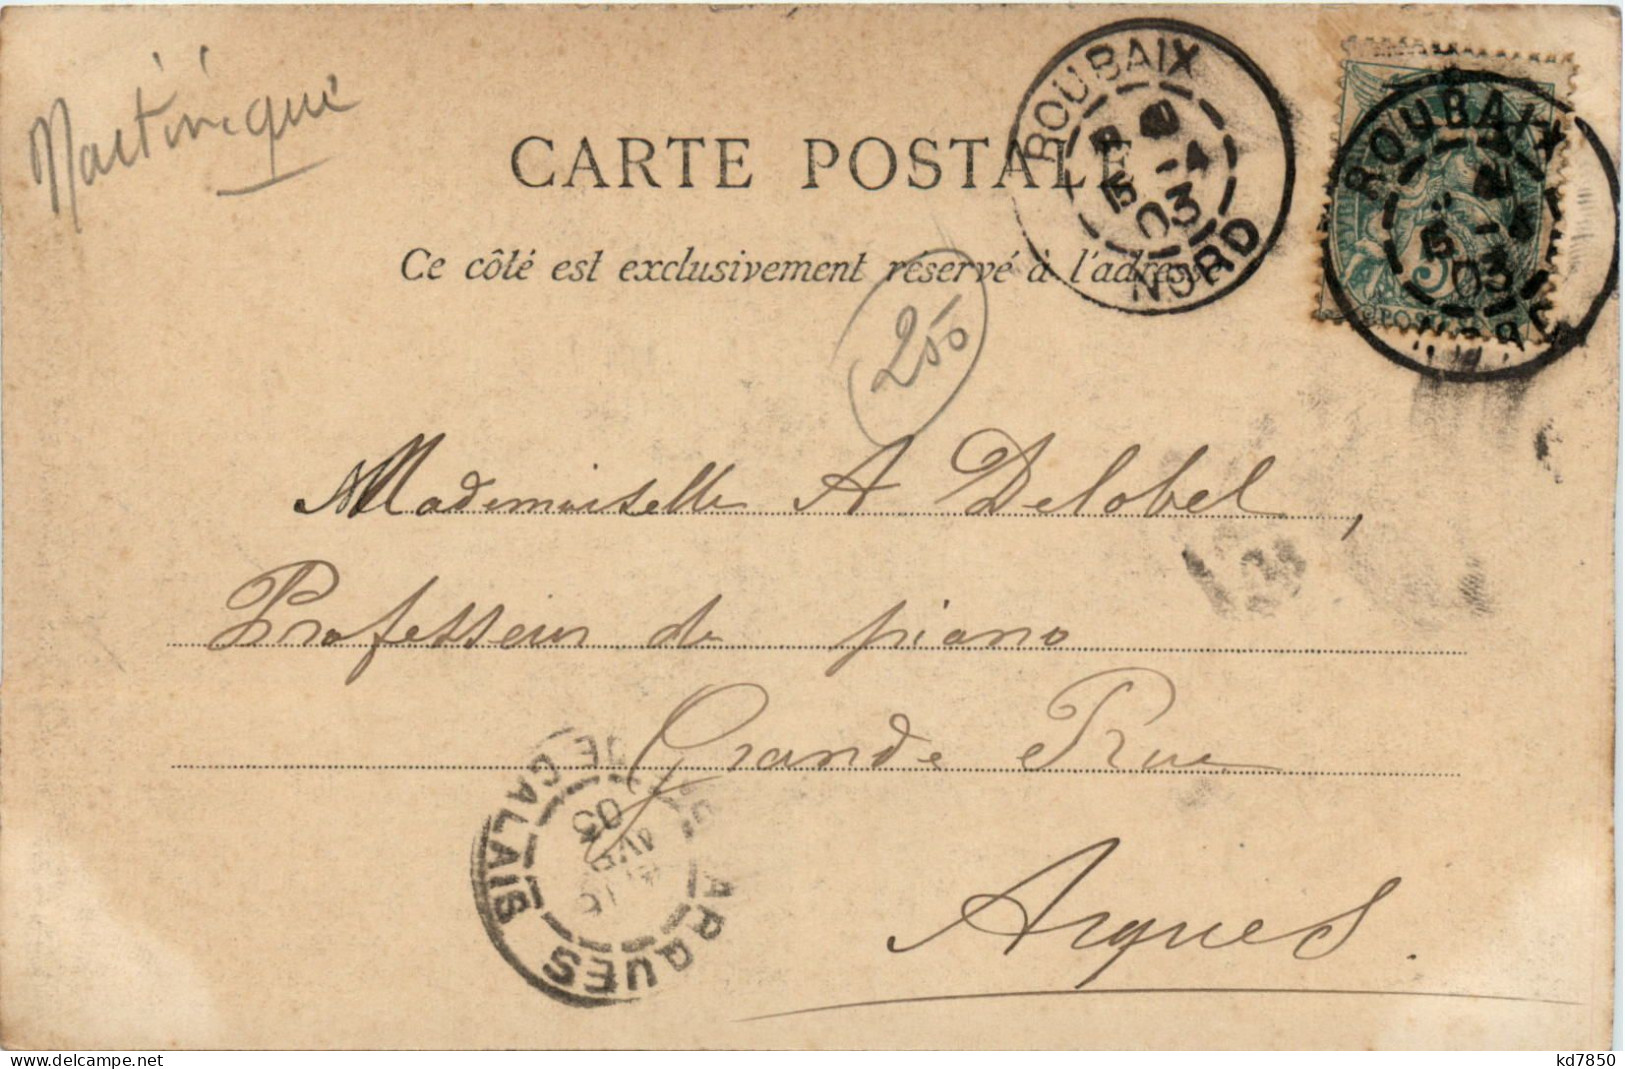 Martinique
CARTE POSTALE
Ce côté est exclusivement réservé à l'adresse
250
ROUBAIX
5 -4
03
NORD
ROUBAIX
5 -4
03
NORD
5
POSTES
Mademoiselle A Delobel,
Professeur de piano
Grande Rue
Arques.
ARQUES
PAS DE CALAIS
AVRIL
03
kd7850